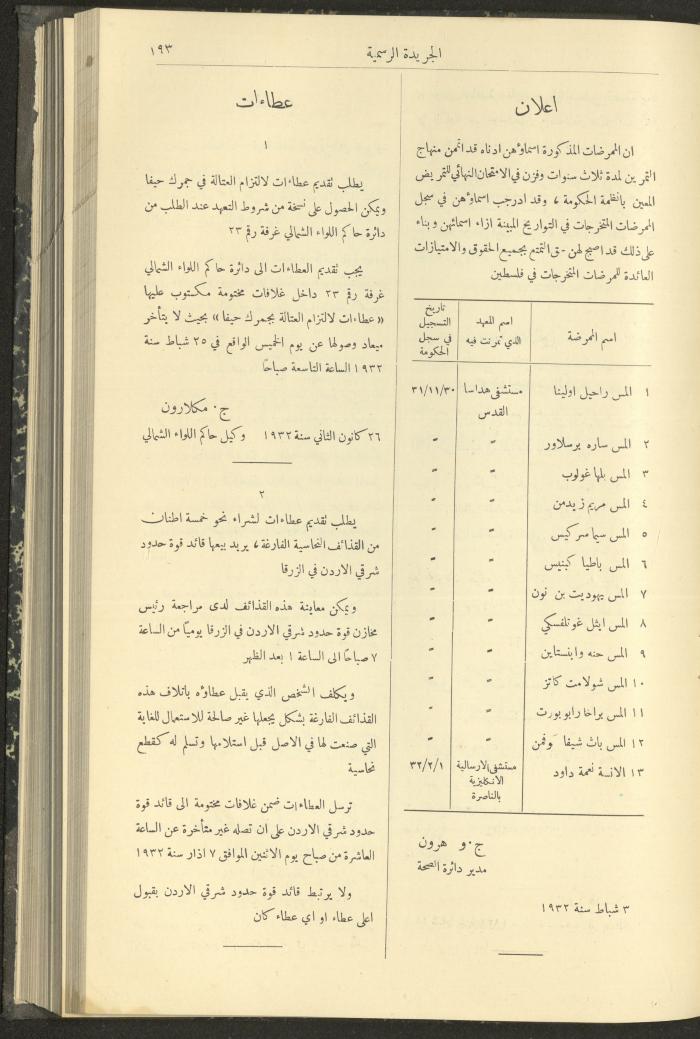 الجريدة الرسمية
١٩٣
اعلان
ان الممرضات المذكورة اسماؤهن ادناه قد اتممن منهاج
التمرين لمدة ثلاث سنوات وفزن في الامتحان النهائي للتمريض
المعين بانظمة الحكومة ، وقد ادرجب اسماؤهن في سجل
الممرضات المتخرجات في التواريخ المبينة ازاء اسمائهن وبناء
على ذلك قد اصبح لهن حق التمتع بجميع الحقوق والامتيازات
العائدة للممرضات المتخرجات في فلسطين
اسم الممرضة
اسم المعهد الذي تمرنت فيه
تاريخ التسجيل في سجل الحكومة
١ المس راحيل اولينا مستشفى هداسا ٣١/١١/٣٠
القدس
٢ المس ساره برسلاور " "
٣ المس بلها غولوب " "
٤ المس مريم زيدمن " "
٥ المس سيما سركيس " "
٦ المس باطيا كبنيس " "
٧ المس يهوديت بن نون " "
٨ المس ايثل غوتلفسكي " "
٩ المس حنه واينستاين " "
١٠ المس شولامت كاتز " "
١١ المس براخا رابوبورت " "
١٢ المس باث شيفا وفمن " "
١٣ الانسة نعمة داود مستشفى الارسالية ٣٢/٢/١
الانكليزية
بالناصرة
ج. و هرون
مدير دائرة الصحة
٣ شباط سنة ١٩٣٢
عطاءات
١
يطلب تقديم عطاءات لالتزام العتالة في جمرك حيفا
ويمكن الحصول على نسخة من شروط التعهد عند الطلب من
دائرة حاكم اللواء الشمالي غرفة رقم ٢٣
يجب تقديم العطاءات الى دائرة حاكم اللواء الشمالي
غرفة رقم ٢٣ داخل غلافات مختومة مكتوب عليها
«عطاءات لالتزام العتالة بجمرك حيفا» بحيث لا يتأخر
ميعاد وصولها عن يوم الخميس الواقع في ٢٥ شباط سنة
١٩٣٢ الساعة التاسعة صباحًا
ج. مكلارون
٢٦ كانون الثاني سنة ١٩٣٢ وكيل حاكم اللواء الشمالي
٢
يطلب تقديم عطاءات لشراء نحو خمسة اطنان
من القذائف النحاسية الفارغة ، يريد بيعها قائد قوة حدود
شرقي الاردن في الزرقا
ويمكن معاينة هذه القذائف لدى مراجعة رئيس
مخازن قوة حدود شرقي الاردن في الزرقا يوميًا من الساعة
٧ صباحًا الى الساعة ١ بعد الظهر
ويكلف الشخص الذي يقبل عطاؤه باتلاف هذه
القذائف الفارغة بشكل يجعلها غير صالحة للاستعمال للغاية
التي صنعت لها في الاصل قبل استلامها وتسلم له كقطع
نحاسية
ترسل العطاءات ضمن غلافات مختومة الى قائد قوة
حدود شرقي الاردن على ان تصله غير متأخرة عن الساعة
العاشرة من صباح يوم الاثنين الموافق ٧ اذار سنة ١٩٣٢
ولا يرتبط قائد قوة حدود شرقي الاردن بقبول
اعلى عطاء او اي عطاء كان